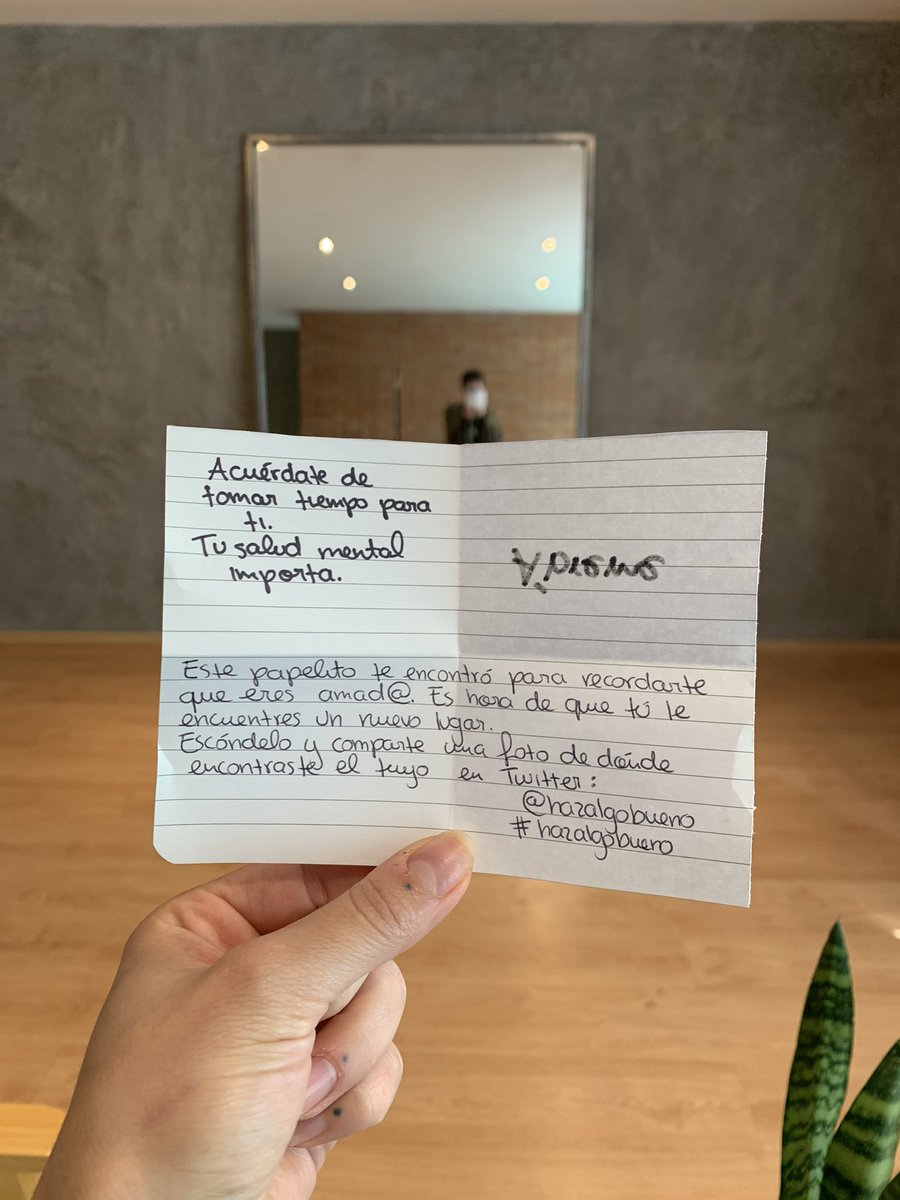 Acuérdate de
tomar tiempo para
ti.
Tu salud mental
importa.
Ábreme
Este papelito te encontró para recordarte
que eres amad@. Es hora de que tú le
encuentres un nuevo lugar.
Escóndelo y comparte una foto de dónde
encontraste el tuyo en Twitter:
@hazalgobueno
#hazalgobueno